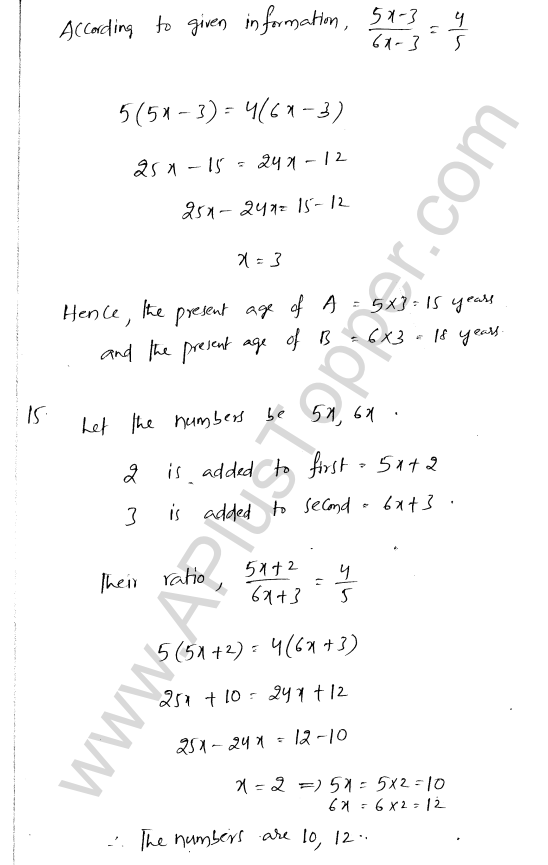 According to given information, 5x-3/6x-3 = 4/5
5(5x-3) = 4(6x-3)
25x - 15 = 24x - 12
25x - 24x = 15 - 12
x = 3
Hence, the present age of A = 5×3 = 15 years
and the present age of B = 6×3 = 18 years.
15. Let the numbers be 5x, 6x.
2 is added to first = 5x+2
3 is added to second = 6x+3.
Their ratio, 5x+2/6x+3 = 4/5
5(5x+2) = 4(6x+3)
25x + 10 = 24x + 12
25x - 24x = 12 - 10
x = 2 => 5x = 5×2 = 10
6x = 6×2 = 12
∴ The numbers are 10, 12.
www.APlusTopper.com